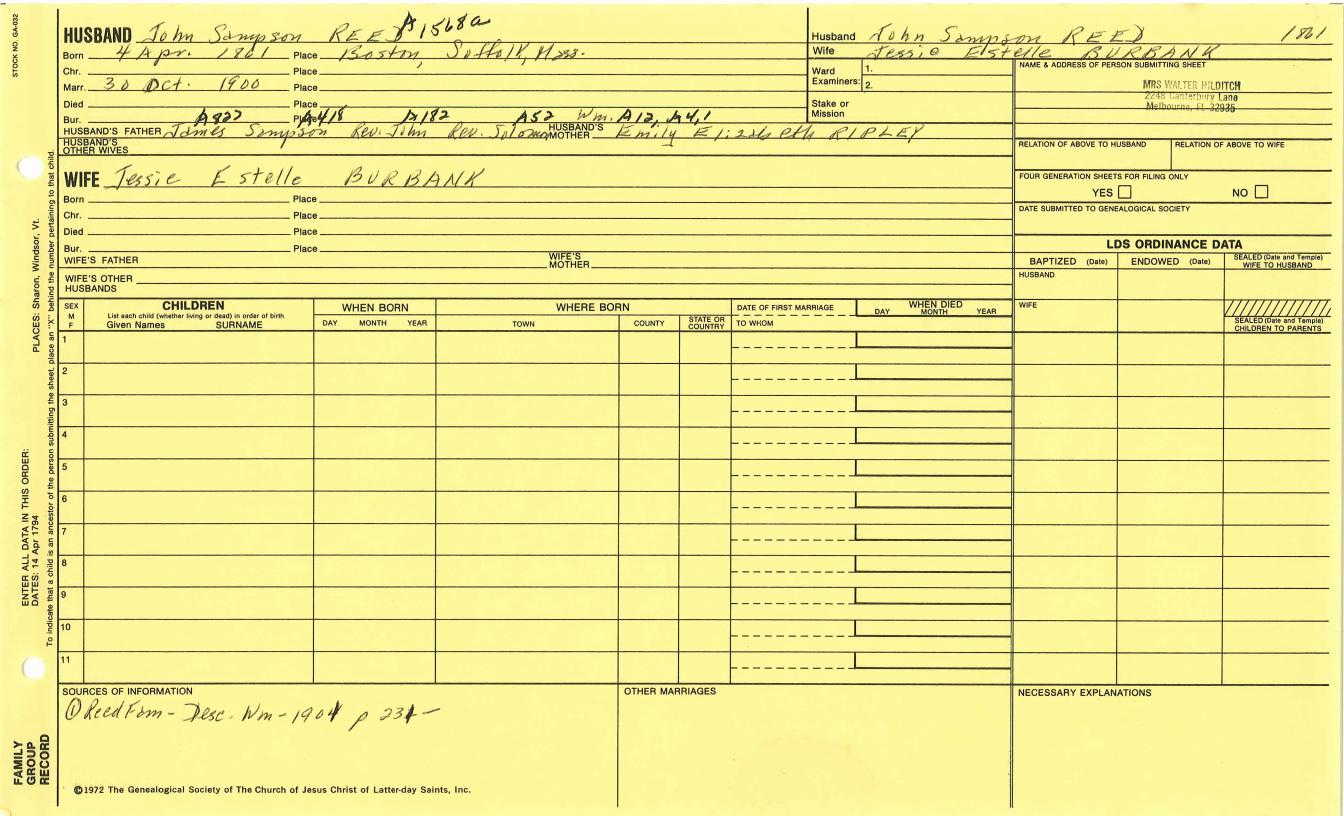 STOCK NO. GA-032
HUSBAND John Sampson REED A1568a
Born 4 Apr. 1861 Place Boston, Suffolk, Mass.
Chr. Place
Marr. 30 Oct. 1900 Place
Died Place
Bur. Place
A822 A418 A182 A52 Wm. A12, A4,1
HUSBAND'S FATHER James Sampson Rev. John Rev. Solomon HUSBAND'S MOTHER Emily Elizabeth RIPLEY
HUSBAND'S OTHER WIVES
WIFE Jessie Estelle BURBANK
Born Place
Chr. Place
Died Place
Bur. Place
WIFE'S FATHER WIFE'S MOTHER
WIFE'S OTHER HUSBANDS
Husband John Sampson REED 1861
Wife Jessie Estelle BURBANK
Ward Examiners: 1.
2.
Stake or Mission
NAME & ADDRESS OF PERSON SUBMITTING SHEET
MRS WALTER HILDITCH
2248 Canterbury Lane
Melbourne, FL 32935
RELATION OF ABOVE TO HUSBAND RELATION OF ABOVE TO WIFE
FOUR GENERATION SHEETS FOR FILING ONLY
YES NO
DATE SUBMITTED TO GENEALOGICAL SOCIETY
LDS ORDINANCE DATA
BAPTIZED (Date) ENDOWED (Date) SEALED (Date and Temple) WIFE TO HUSBAND
HUSBAND
WIFE
SEALED (Date and Temple) CHILDREN TO PARENTS
SEX M F
CHILDREN
List each child (whether living or dead) in order of birth
Given Names SURNAME
WHEN BORN
DAY MONTH YEAR
WHERE BORN
TOWN COUNTY STATE OR COUNTRY
DATE OF FIRST MARRIAGE
TO WHOM
WHEN DIED
DAY MONTH YEAR
1
2
3
4
5
6
7
8
9
10
11
SOURCES OF INFORMATION
① Reed Fam - Desc. Wm - 1901 p 231 -
OTHER MARRIAGES
NECESSARY EXPLANATIONS
©1972 The Genealogical Society of The Church of Jesus Christ of Latter-day Saints, Inc.
FAMILY GROUP RECORD
ENTER ALL DATA IN THIS ORDER:
DATES: 14 Apr 1794 PLACES: Sharon, Windsor, Vt.
To indicate that a child is an ancestor of the person submitting the sheet, place an "X" behind the number pertaining to that child.